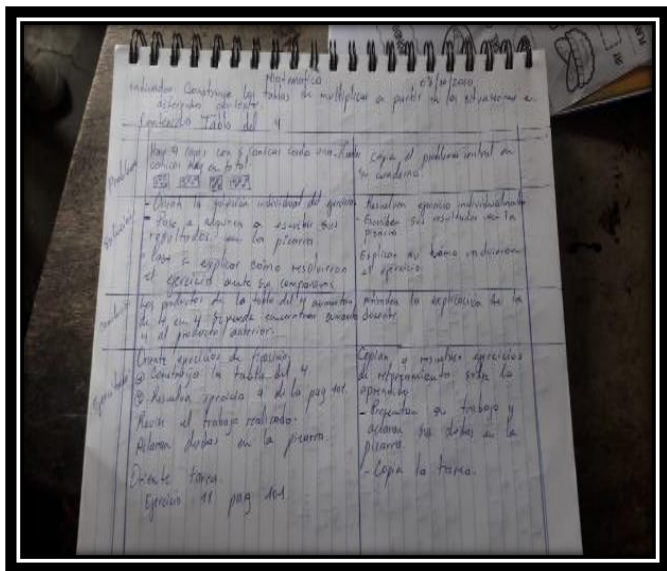 Matemática
Indicador: Construye las tablas de multiplicar a partir de las situaciones en
diferentes contexto.
Contenido Tabla del 4
Problema
Hay 4 cajas con 5 conicas cada una
conicas hay en total
copia el problema central en
su cuaderno.
Solución
- Orienta la solución individual del ejercicio
- Pase a algunos a escribir sus
resultados en la pizarra
- Pase a explicar cómo resolvieron
el ejercicio ante sus compañeros
Resuelven ejercicio individualmente
- Escriben sus resultados en la
pizarra
Explican cómo resolvieron
el ejercicio.
Conclusión
Los productos de la tabla del 4 aumentan
de 4 en 4 sumando
4 al producto anterior.
Atienden la explicación de la
docente
Ejercitada
Oriente ejercicios de fijación.
Construya la tabla del 4
Resuelva ejercicio 9 de la pag 101.
Revise el trabajo realizado.
Aclaran dudas en la pizarra.
Oriente tarea.
Ejercicio 11 pag 101.
Copian y resuelven ejercicios
de reforzamiento sobre lo
aprendido
- Presentan su trabajo y
aclaran sus dudas en la
pizarra.
- Copia la tarea.